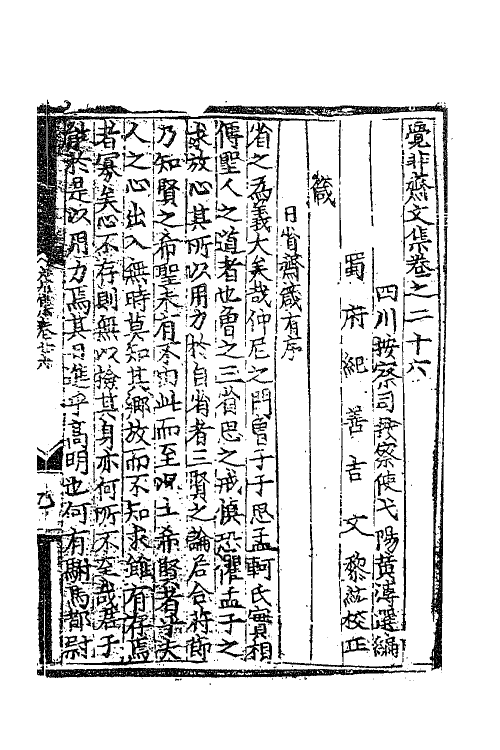 覺非齋文集卷之二十六
四川按察司按察使弋陽黃溥選編
蜀府紀善吉文黎紘校正
箴
日省齋箴有序
省之為義大矣哉仲尼之門曾子子思孟軻氏實相
傳聖人之道者也曾之三省思之戒慎恐懼孟子之
求放心其所以用力於自省者三賢之論后合符節
乃知賢之希聖未有不由此而至况士希賢者乎夫
人之心出入無時莫知其鄉故而不知求雖有存焉
者寡矣心不存則無以檢其身亦何所不至哉君子
於是以用力焉其日進乎高明也何有駙馬都尉